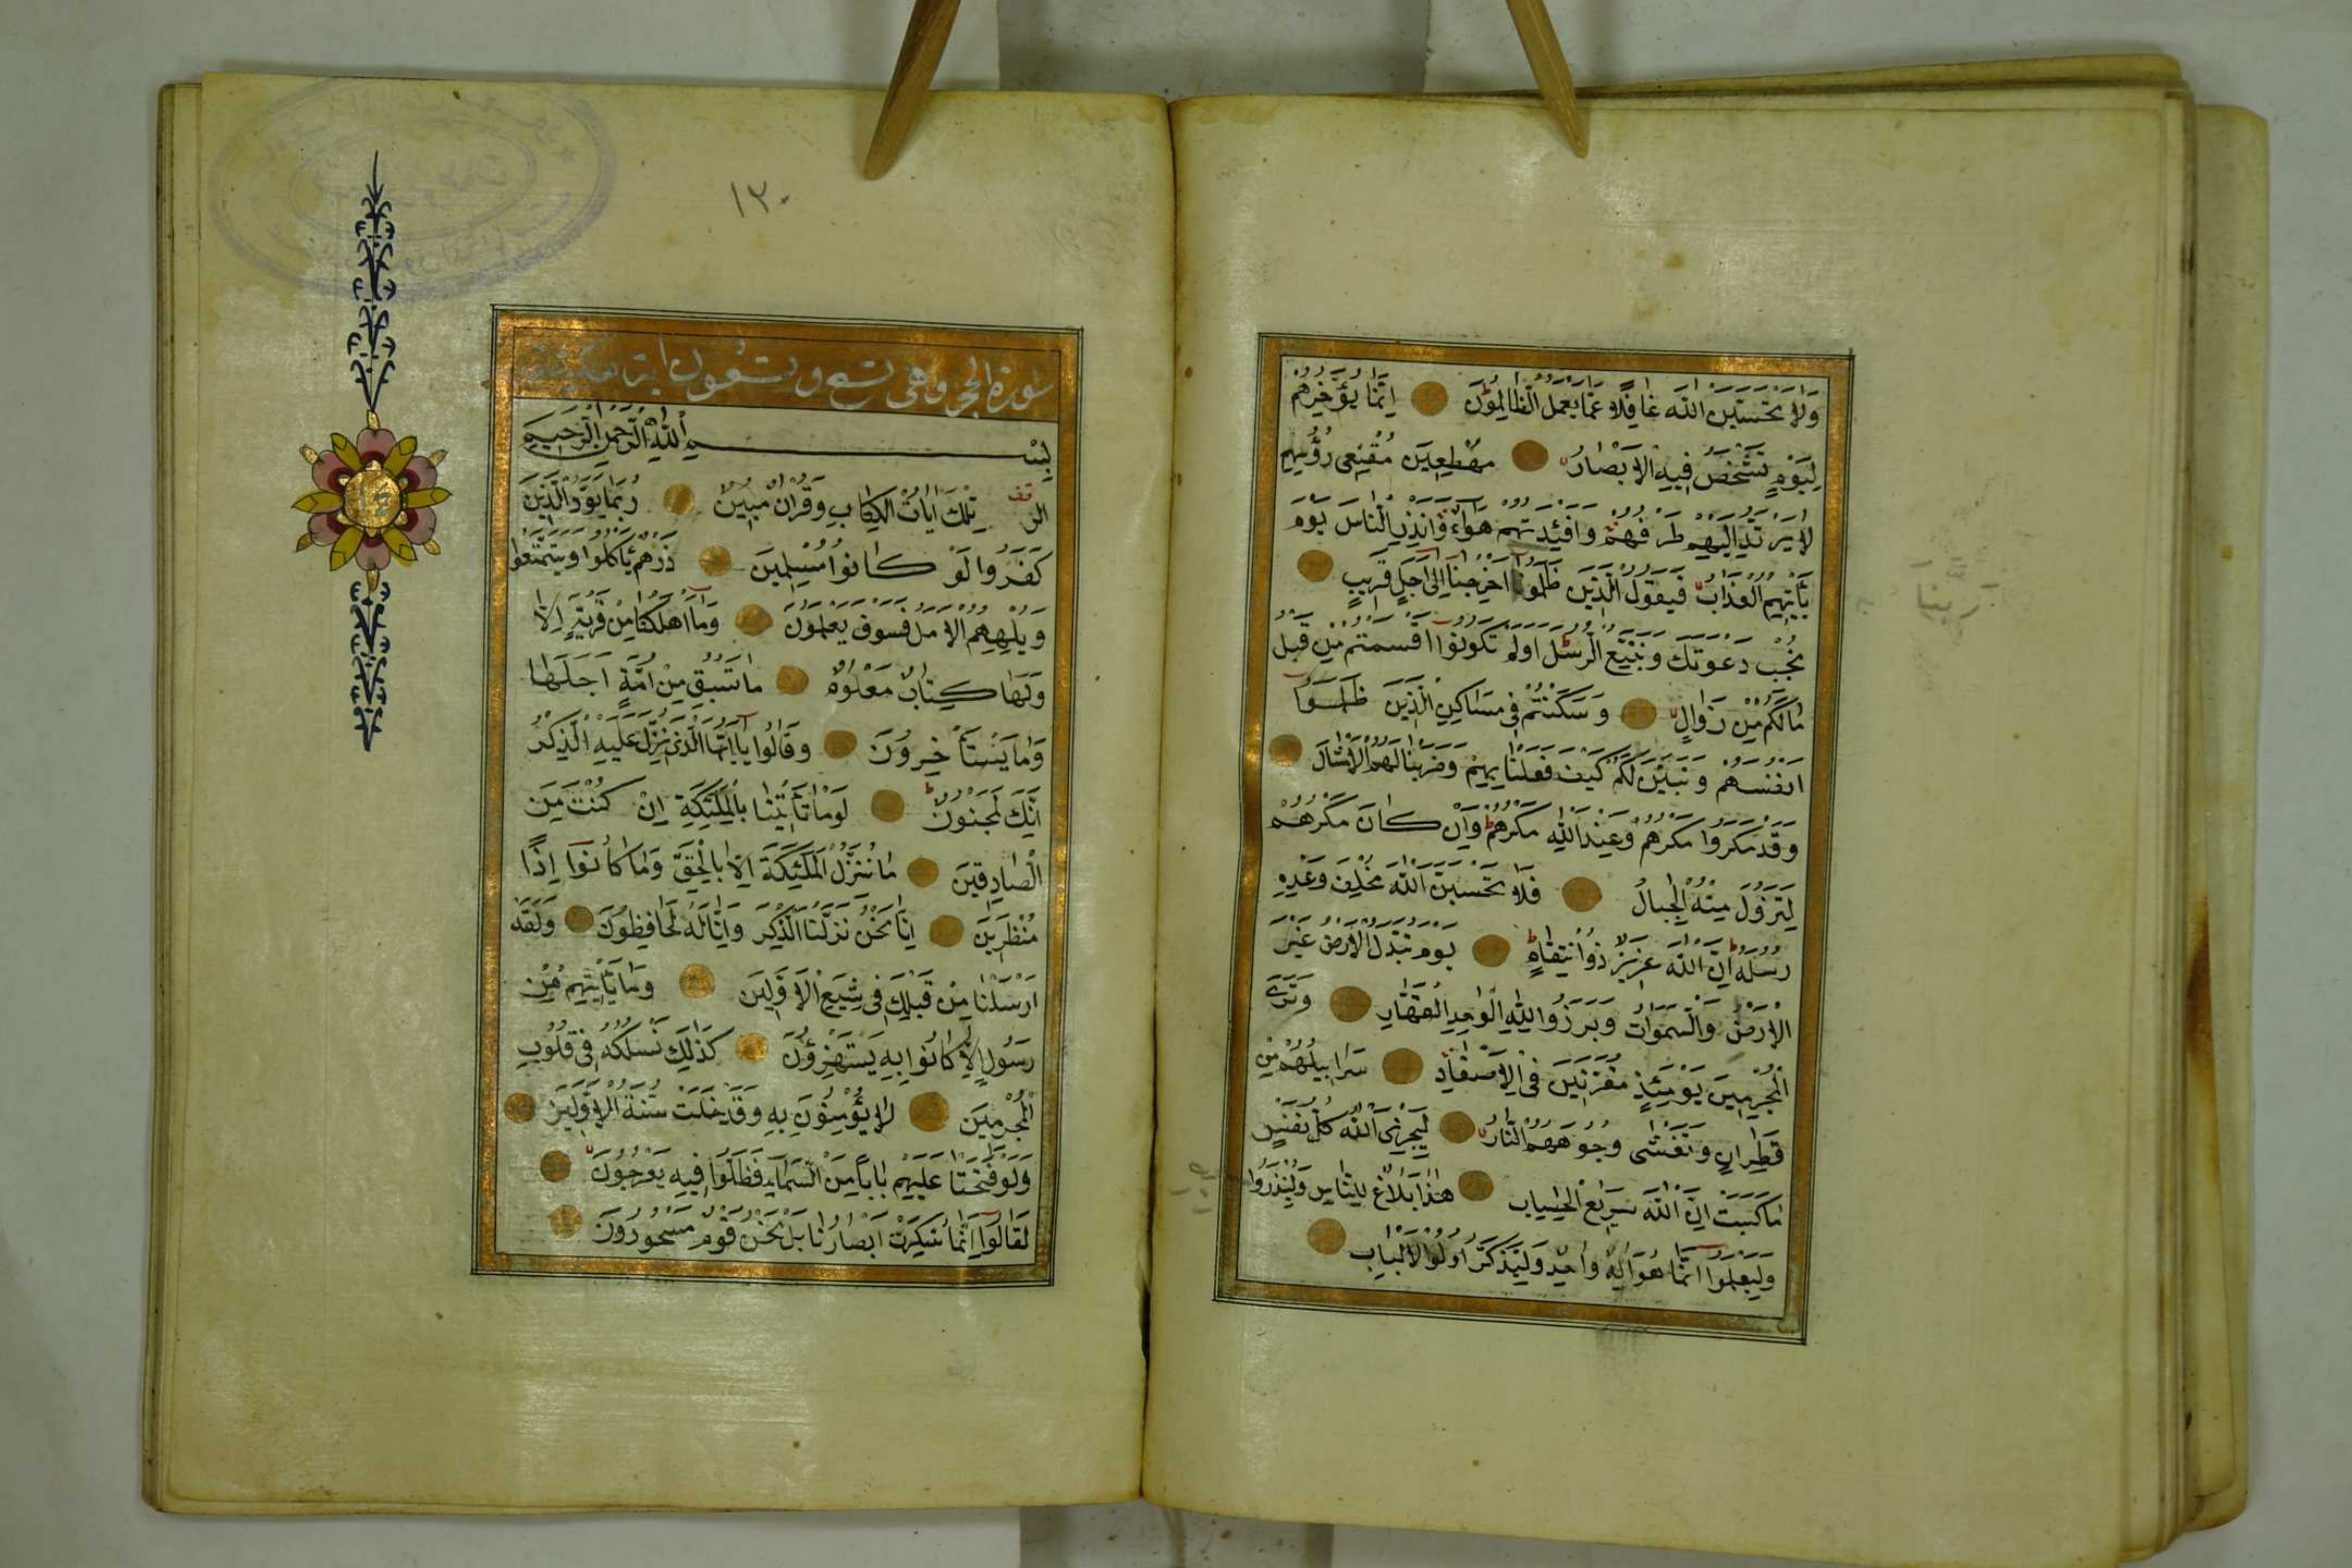 وَلَا تَحْسَبَنَّ اللّٰهَ غَافِلًا عَمَّا يَعْمَلُ الظَّالِمُونَ اِنَّمَا يُؤَخِّرُهُمْ
لِيَوْمٍ تَشْخَصُ فِيهِ الْاَبْصَارُ مُهْطِعِينَ مُقْنِعِى رُؤُسِهِمْ
لَا يَرْتَدُّ اِلَيْهِمْ طَرْفُهُمْ وَاَفْئِدَتُهُمْ هَوَاءٌ وَاَنْذِرِ النَّاسَ يَوْمَ
يَأْتِيهِمُ الْعَذَابُ فَيَقُولُ الَّذِينَ ظَلَمُوا اَخِّرْنَا اِلٰى اَجَلٍ قَرِيبٍ
نُجِبْ دَعْوَتَكَ وَنَتَّبِعِ الرُّسُلَ اَوَلَمْ تَكُونُوا اَقْسَمْتُمْ مِنْ قَبْلُ
مَا لَكُمْ مِنْ زَوَالٍ وَسَكَنْتُمْ فِى مَسَاكِنِ الَّذِينَ ظَلَمُوا
اَنْفُسَهُمْ وَتَبَيَّنَ لَكُمْ كَيْفَ فَعَلْنَا بِهِمْ وَضَرَبْنَا لَكُمُ الْاَمْثَالَ
وَقَدْ مَكَرُوا مَكْرَهُمْ وَعِنْدَ اللّٰهِ مَكْرُهُمْ وَاِنْ كَانَ مَكْرُهُمْ
لِتَزُولَ مِنْهُ الْجِبَالُ فَلَا تَحْسَبَنَّ اللّٰهَ مُخْلِفَ وَعْدِهِ
رُسُلَهُ اِنَّ اللّٰهَ عَزِيزٌ ذُوا نْتِقَامٍ يَوْمَ تُبَدَّلُ الْاَرْضُ غَيْرَ
الْاَرْضِ وَالسَّمٰوَاتُ وَبَرَزُوا لِلّٰهِ الْوَاحِدِ الْقَهَّارِ وَتَرَى
الْمُجْرِمِينَ يَوْمَئِذٍ مُقَرَّنِينَ فِى الْاَصْفَادِ سَرَابِيلُهُمْ مِنْ
قَطِرَانٍ وَتَغْشٰى وُجُوهَهُمُ النَّارُ لِيَجْزِىَ اللّٰهُ كُلَّ نَفْسٍ
مَا كَسَبَتْ اِنَّ اللّٰهَ سَرِيعُ الْحِسَابِ هٰذَا بَلَاغٌ لِلنَّاسِ وَلِيُنْذَرُوا
وَلِيَعْلَمُوا اَنَّمَا هُوَ اِلٰهٌ وَاحِدٌ وَلِيَذَّكَّرَ اُولُوا الْاَلْبَابِ
ربنا
١٣٠
سورة الحجر وهى تسع وتسعون اية مكية
بِسْمِ اللّٰهِ الرَّحْمٰنِ الرَّحِيمِ
الر تِلْكَ اٰيَاتُ الْكِتَابِ وَقُرْاٰنٍ مُبِينٍ رُبَمَا يَوَدُّ الَّذِينَ
كَفَرُوا لَوْ كَانُوا مُسْلِمِينَ ذَرْهُمْ يَأْكُلُوا وَيَتَمَتَّعُوا
وَيُلْهِهِمُ الْاَمَلُ فَسَوْفَ يَعْلَمُونَ وَمَا اَهْلَكْنَا مِنْ قَرْيَةٍ اِلَّا
وَلَهَا كِتَابٌ مَعْلُومٌ مَا تَسْبِقُ مِنْ اُمَّةٍ اَجَلَهَا
وَمَا يَسْتَأْخِرُونَ وَقَالُوا يَا اَيُّهَا الَّذِى نُزِّلَ عَلَيْهِ الذِّكْرُ
اِنَّكَ لَمَجْنُونٌ لَوْ مَا تَأْتِينَا بِالْمَلٰئِكَةِ اِنْ كُنْتَ مِنَ
الصَّادِقِينَ مَا نُنَزِّلُ الْمَلٰئِكَةَ اِلَّا بِالْحَقِّ وَمَا كَانُوا اِذًا
مُنْظَرِينَ اِنَّا نَحْنُ نَزَّلْنَا الذِّكْرَ وَاِنَّا لَهُ لَحَافِظُونَ وَلَقَدْ
اَرْسَلْنَا مِنْ قَبْلِكَ فِى شِيَعِ الْاَوَّلِينَ وَمَا يَأْتِيهِمْ مِنْ
رَسُولٍ اِلَّا كَانُوا بِهِ يَسْتَهْزِؤُنَ كَذٰلِكَ نَسْلُكُهُ فِى قُلُوبِ
الْمُجْرِمِينَ لَا يُؤْمِنُونَ بِهِ وَقَدْ خَلَتْ سُنَّةُ الْاَوَّلِينَ
وَلَوْ فَتَحْنَا عَلَيْهِمْ بَابًا مِنَ السَّمَاءِ فَظَلُّوا فِيهِ يَعْرُجُونَ
لَقَالُوا اِنَّمَا سُكِّرَتْ اَبْصَارُنَا بَلْ نَحْنُ قَوْمٌ مَسْحُورُونَ